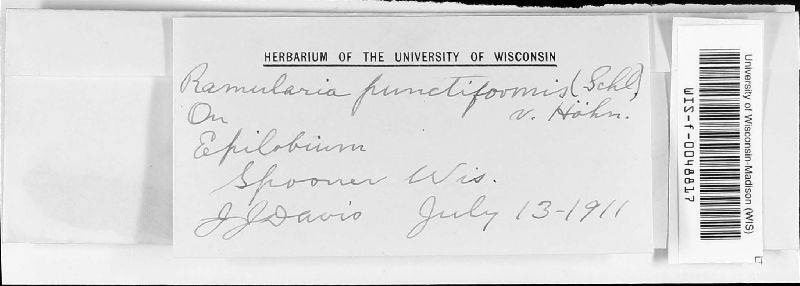 HERBARIUM OF THE UNIVERSITY OF WISCONSIN
Ramularia punctiformis (Schl.)
v. Höhn.
On
Epilobium
Spooner Wis.
J J Davis July 13-1911
University of Wisconsin-Madison (WIS)
WIS-f-0048817